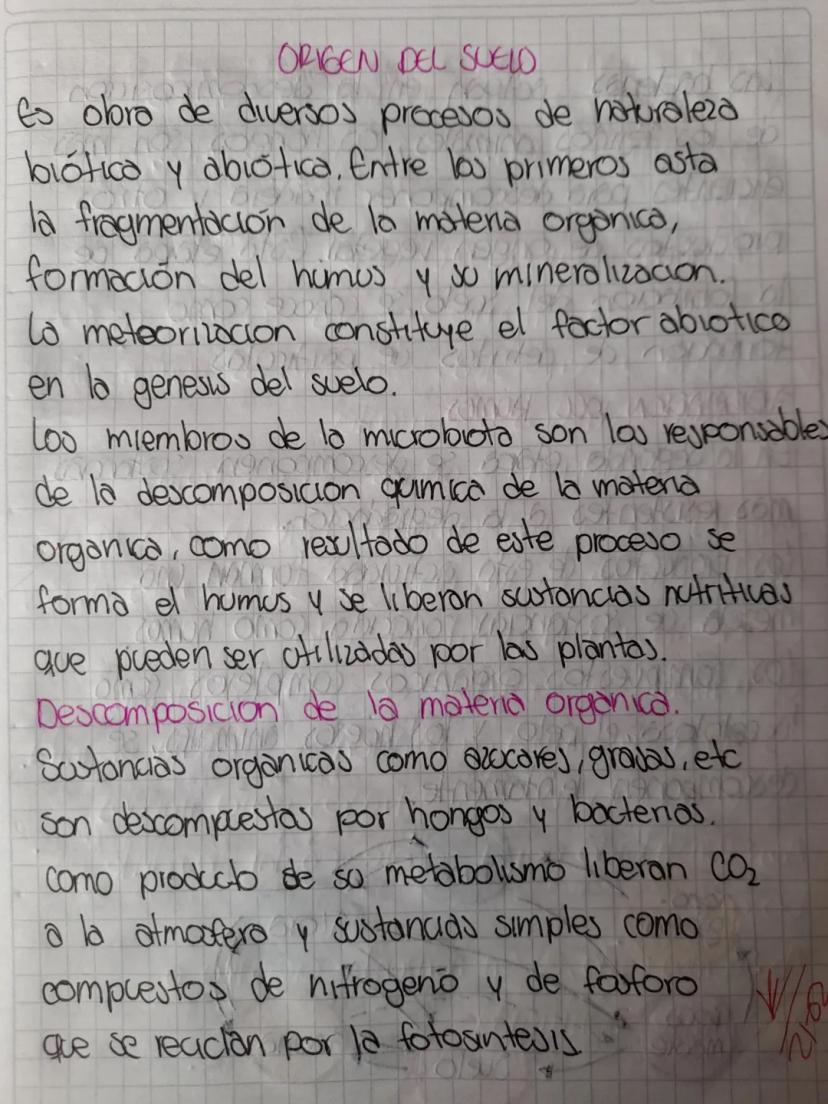 ORIGEN DEL SUELO
Es obra de diversos procesos de naturaleza
biótica y abiótica. Entre los primeros asta
la fragmentación de la materia organica,
formación del humus y su mineralizacion.
La meteorizacion constituye el factor abiotico
en la genesis del suelo.
Los miembros de la microbiota son los responsables
de la descomposicion quimica de la materia
organica, como resultado de este proceso se
forma el humus y se liberan sustancias nutritivas
que pueden ser utilizadas por las plantas.
Descomposicion de la materia organica.
Sustancias organicas como azucares, grasas, etc
son descompuestas por hongos y bacterias.
como producto de su metabolismo liberan CO₂
a la atmosfera y sustancias simples como
compuestos de nitrogeno y de fosforo
que se reciclan por la fotosintesis